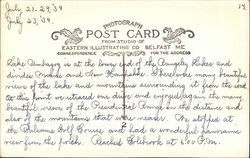 July 21-29, '34
July 23, '34.
14
PHOTOGRAPHY
POST CARD
FROM STUDIO OF
EASTERN ILLUSTRATING CO. BELFAST ME.
CORRESPONDENCE HERE
FOR THE ADDRESS
Lake Umbagog is at the lower end of the Rangeley Lakes and
divides Maine and New Hampshire. There were many beautiful
views of the lake and mountains surrounding it from the road.
At this point we retraced our drive and enjoyed again the many
beautiful views of the Presidential Range in the distance and
also of the mountains that were nearer. We stopped at
the Balsams Golf Course and had a wonderful panoramic
view from the porch. Reached Colebrook at 6:00 P.M.